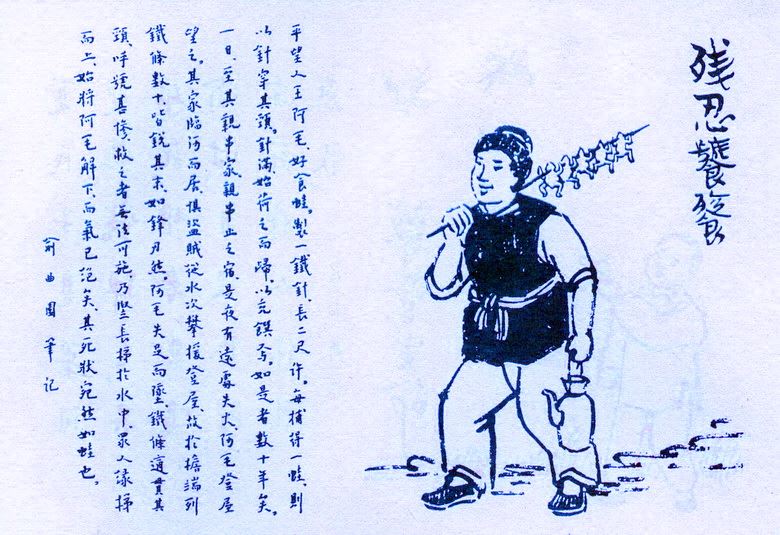 残忍饕餮
平望人王阿毛、好食蛙。製一鐵針、長二尺許。每捕得一蛙、則
以針穿其頸。針滿始荷之而歸、以充饌食。如是者數十年矣。
一日、至其親串家、親串止之宿。是夜有遠處失火、阿毛登屋
望之。其家臨河而居、懼盜賊從水次攀援登屋、故於檐端列
鐵條數十、皆銳其末、如鋒刃然。阿毛失足而墜、鐵條適貫其
頸、呼號甚慘、救之者無法可施、乃豎長梯於水中、眾人緣梯
而上、始將阿毛解下、而氣已絕矣。其死狀宛然如蛙也。
俞曲園筆記